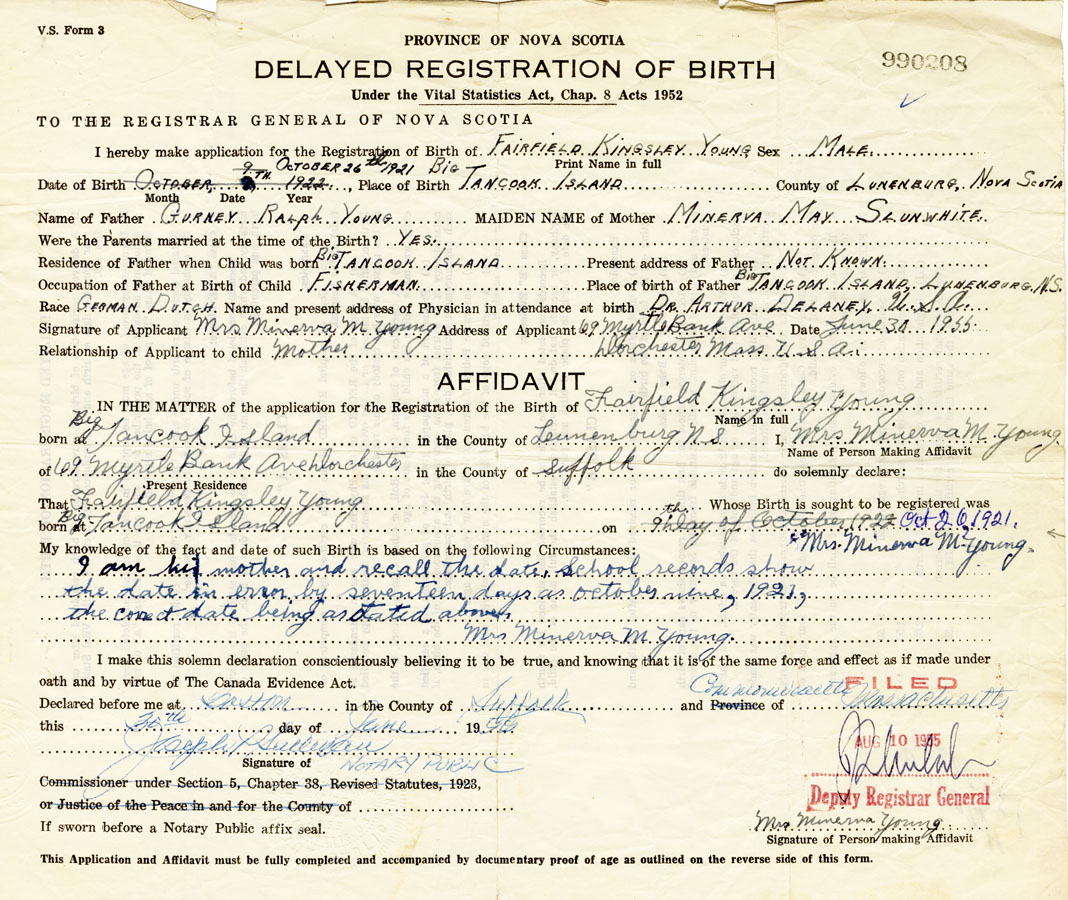 V.S. Form 3
PROVINCE OF NOVA SCOTIA
990208
DELAYED REGISTRATION OF BIRTH
Under the Vital Statistics Act, Chap. 8 Acts 1952
TO THE REGISTRAR GENERAL OF NOVA SCOTIA
I hereby make application for the Registration of Birth of FAIRFIELD KINGSLEY YOUNG Sex MALE
Print Name in full
9TH OCTOBER 26th 1921 Big
Date of Birth OCTOBER 1922, Place of Birth TANCOOK ISLAND County of LUNENBURG, NOVA SCOTIA
Month Date Year
Name of Father GURNEY RALPH YOUNG MAIDEN NAME of Mother MINERVA MAY SLUNWHITE
Were the Parents married at the time of the Birth? YES.
Residence of Father when Child was born Big TANCOOK ISLAND Present address of Father NOT KNOWN.
Occupation of Father at Birth of Child FISHERMAN Place of birth of Father Big TANCOOK ISLAND, LUNENBURG, N.S.
Race GERMAN DUTCH. Name and present address of Physician in attendance at birth DR. ARTHUR DELANEY, U.S.A.
Signature of Applicant Mrs Minerva M. Young Address of Applicant 69 Myrtle Bank Ave Date June 30 1955
Relationship of Applicant to child Mother Dorchester Mass U.S.A.
AFFIDAVIT
IN THE MATTER of the application for the Registration of the Birth of Fairfield Kingsley Young
Name in full
born at Big Tancook Island in the County of Leunenburg N S I, Mrs Minerva M. Young
Name of Person Making Affidavit
of 69 Myrtle Bank Ave Dorchester in the County of Suffolk do solemnly declare:
Present Residence
That Fairfield Kingsley Young Whose Birth is sought to be registered was
born at Big Tancook Island on 9th Day of October 1922 Oct 26, 1921.
Mrs. Minerva M. Young.
My knowledge of the fact and date of such Birth is based on the following Circumstances:
I am his mother and recall the date. School records show
the date in error by seventeen days as october nine, 1921,
the corect date being as stated above.
Mrs Minerva M Young.
I make this solemn declaration conscientiously believing it to be true, and knowing that it is of the same force and effect as if made under
oath and by virtue of The Canada Evidence Act.
FILED
Declared before me at Boston in the County of Suffolk and Province of Commonwealth Massachusetts
this 30th day of June 1955
AUG 10 1955
Joseph Sullivan
Signature of NOTARY PUBLIC
Commissioner under Section 5, Chapter 38, Revised Statutes, 1923,
or Justice of the Peace in and for the County of
Deputy Registrar General
Mrs Minerva Young
If sworn before a Notary Public affix seal.
Signature of Person making Affidavit
This Application and Affidavit must be fully completed and accompanied by documentary proof of age as outlined on the reverse side of this form.